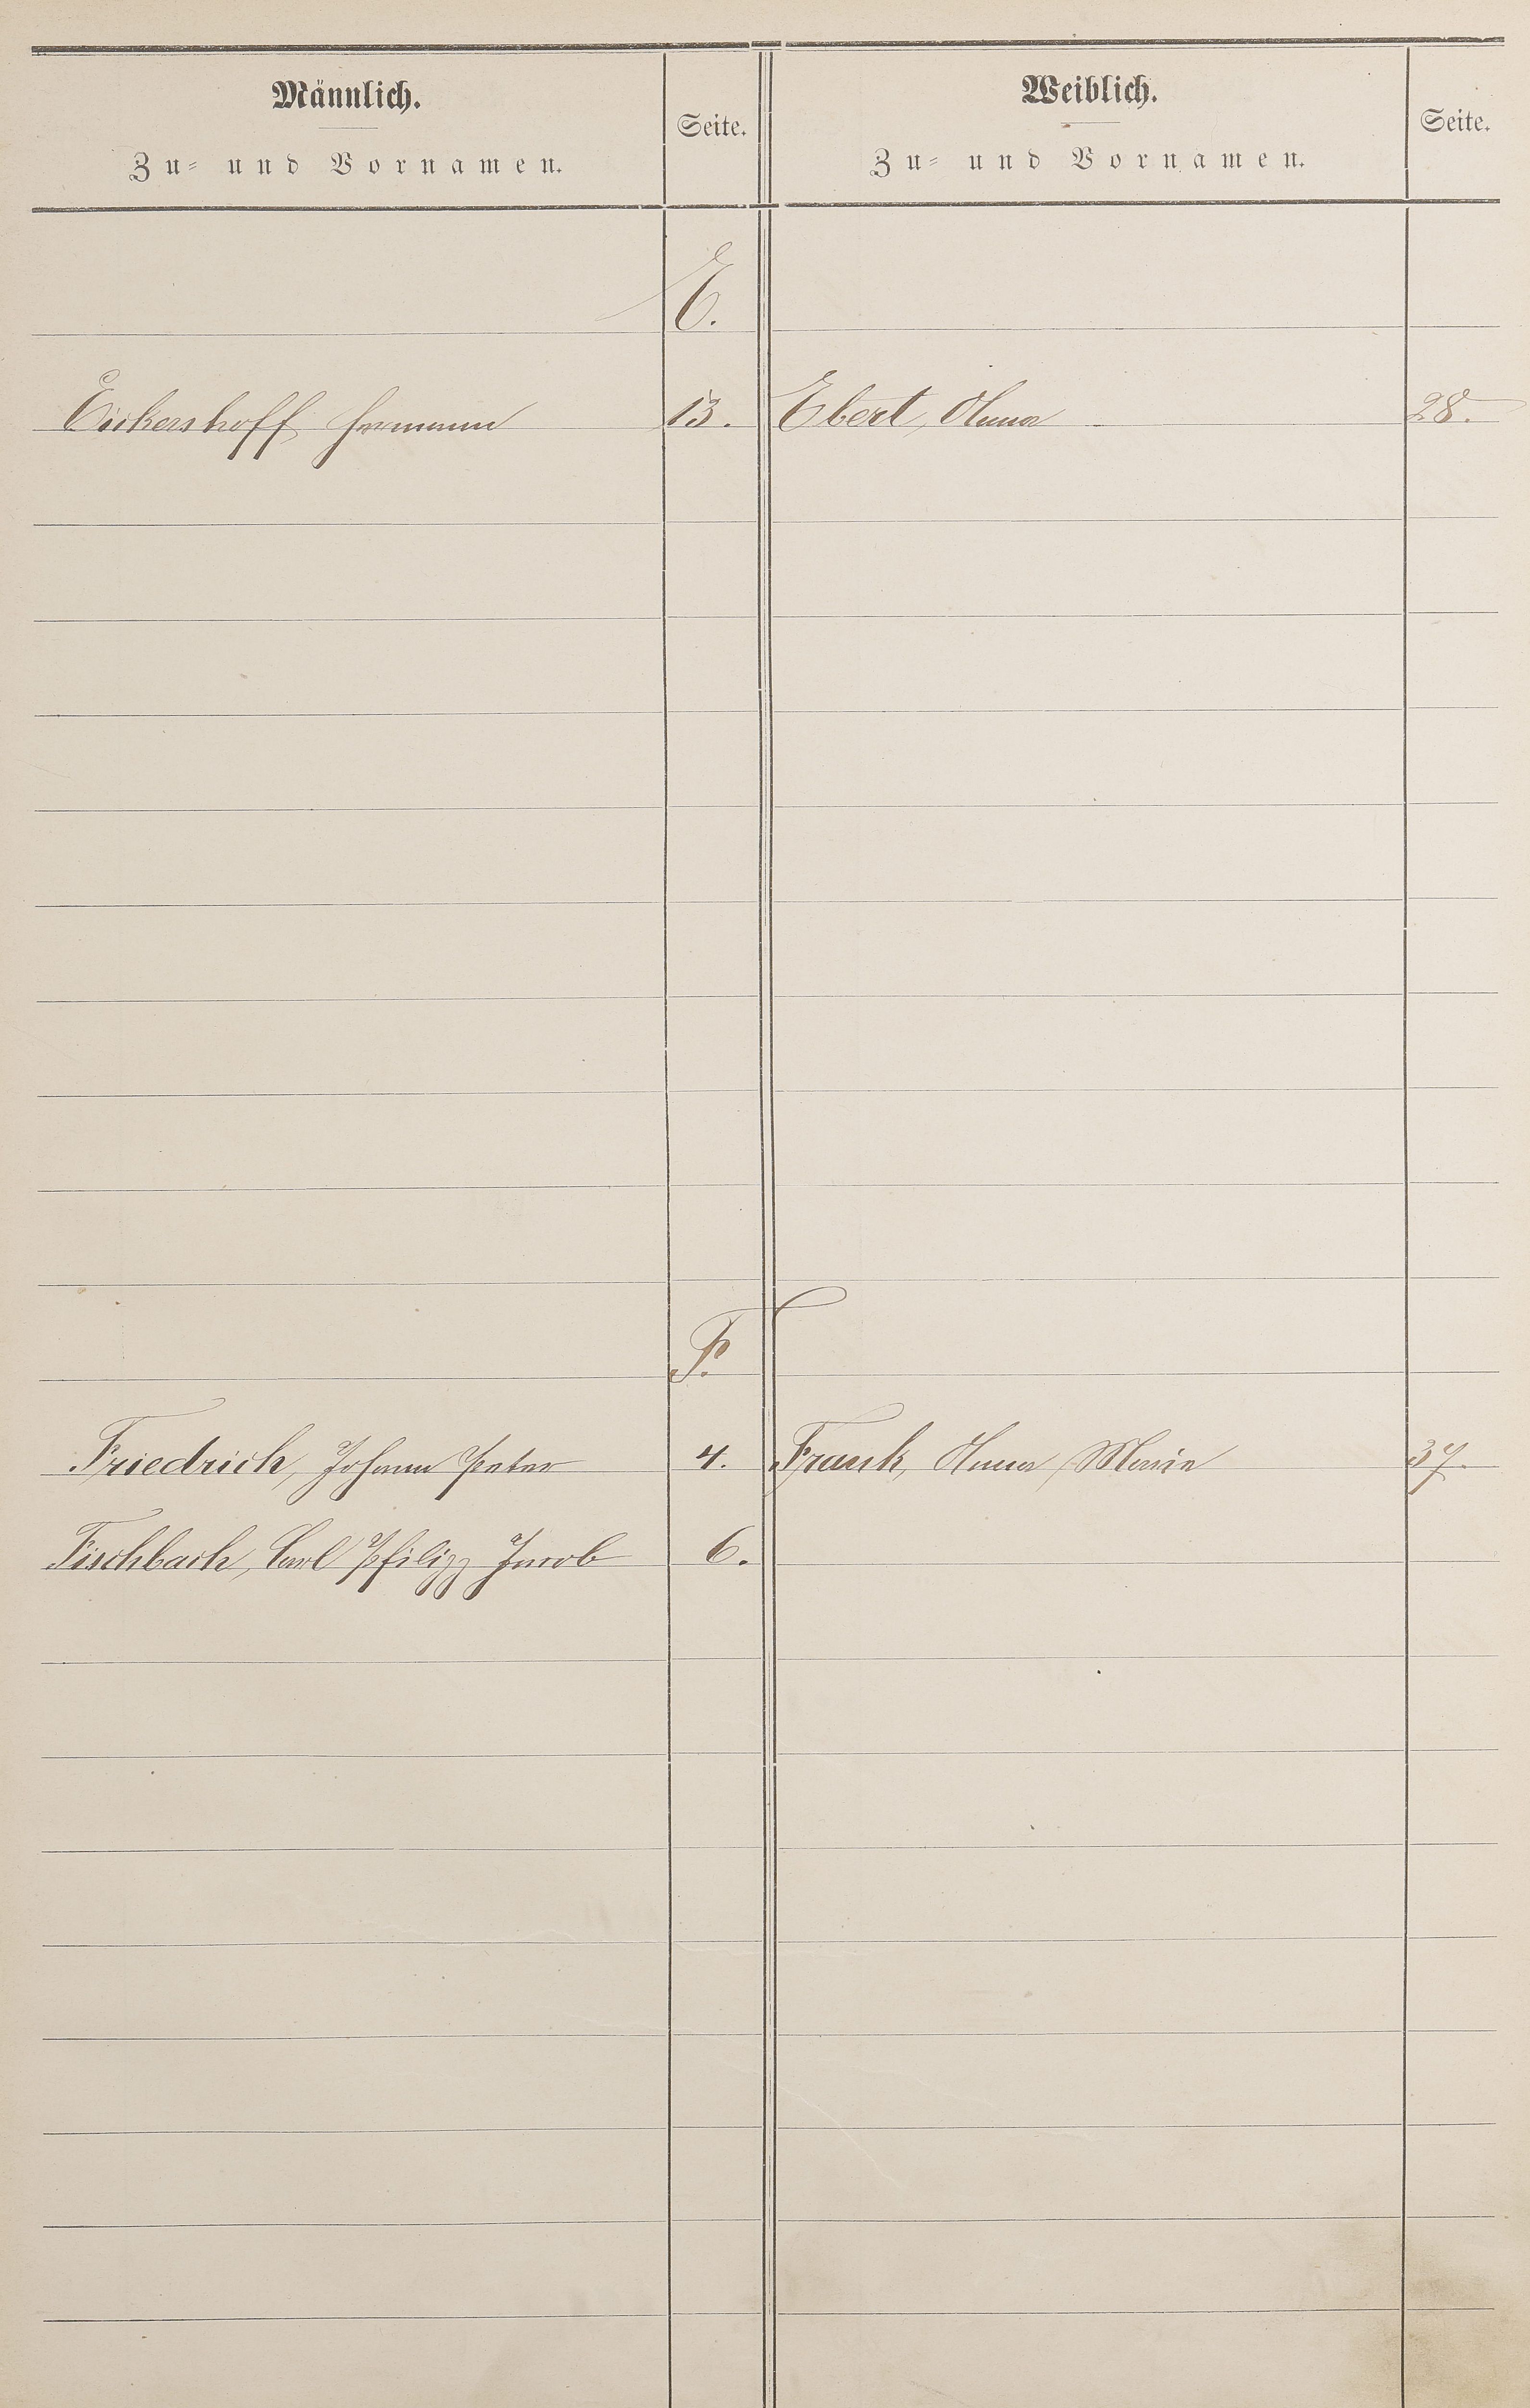 Männlich.
Zu- und Vornamen.
Seite.
Weiblich.
Zu- und Vornamen.
Seite.
E.
Eickershoff Hermann 13. Ebert, Anna 28.
F.
Friedrich, Johann Peter 4. Frank, Anna Maria 37.
Fischbach, Carl Philipp Jacob 6.